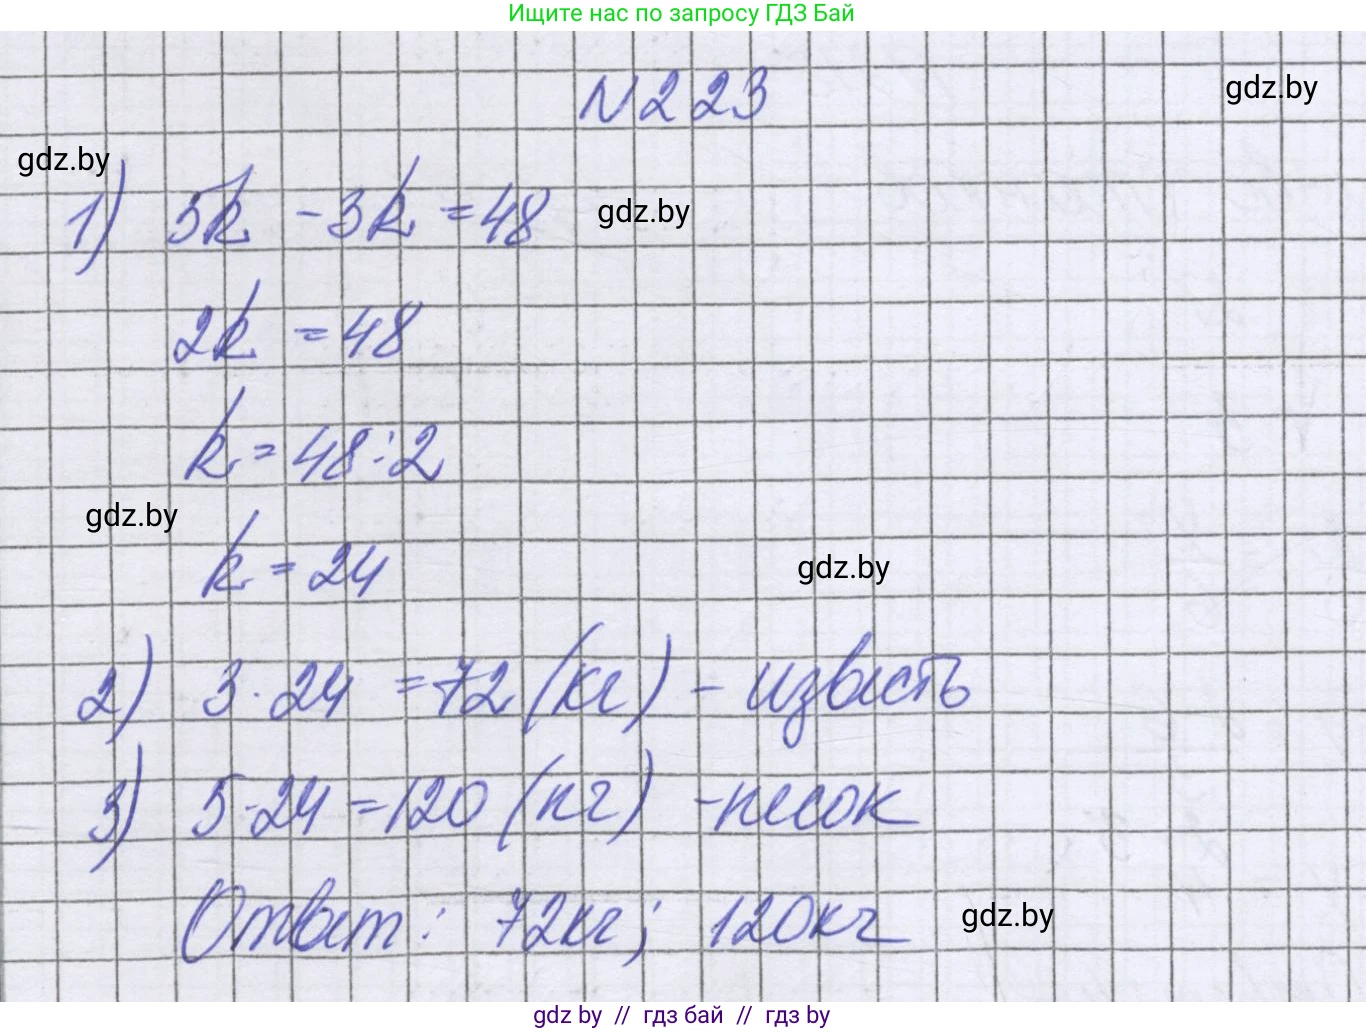 Ищите нас по запросу ГДЗ Бай
N 223
gdz.by
gdz.by
1) 5k - 3k = 48
gdz.by
2k = 48
k = 48 : 2
gdz.by
k = 24
gdz.by
2) 3 · 24 = 72 (кг) - известь
3) 5 · 24 = 120 (кг) - песок
Ответ: 72кг; 120кг
gdz.by
gdz by // гдз бай // гдз by